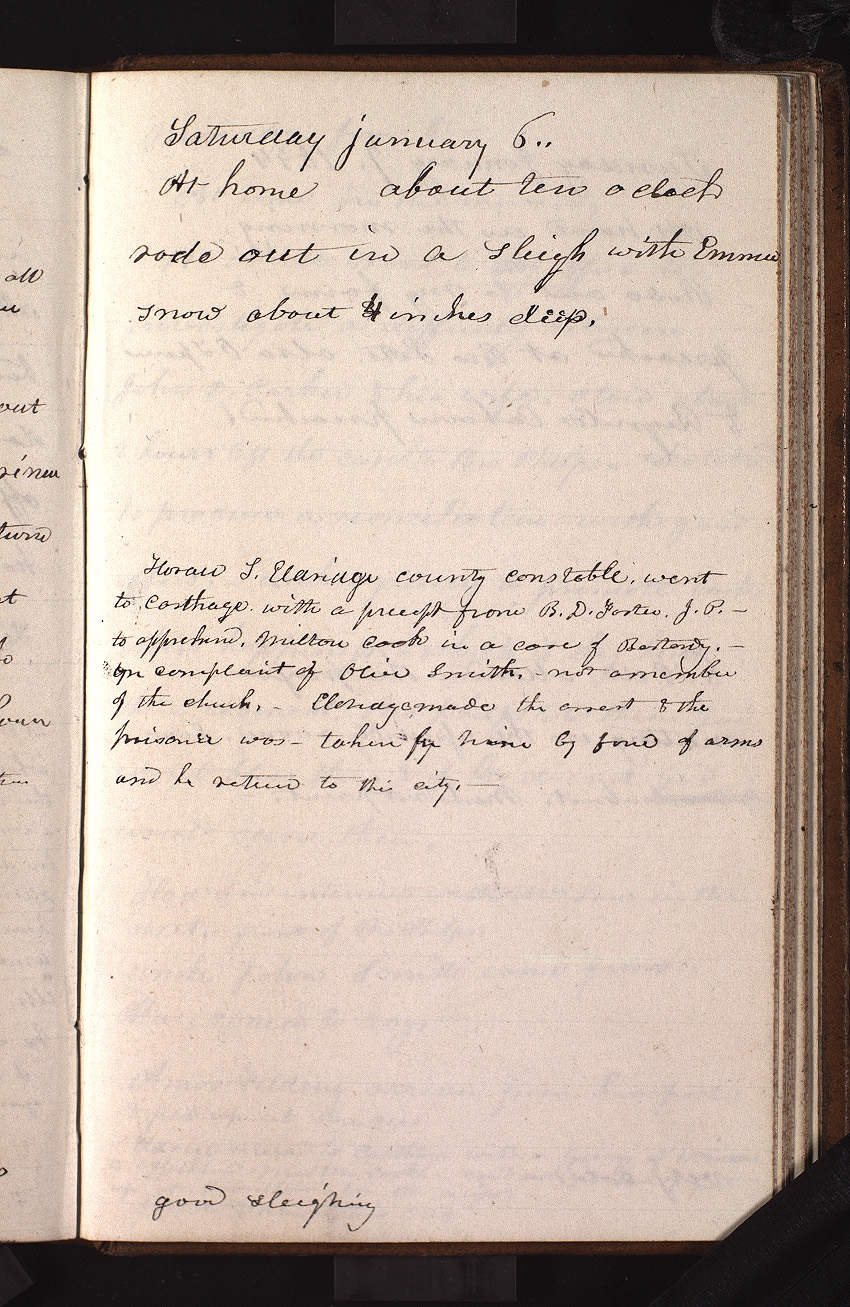 Saturday january 6..
At home about ten oclock
rode out in a sleigh with Emma
snow about 4 inches deep.
Horace S. Eldridge county constable. went
to Carthage. with a precept from B. D. Foster. J. P. —
to apprehend. Milton Cook in a case of Bastardy. —
on complaint of Olive Smith. - not a member
of the church. - Eldridge made the arrest & the
prisoner was - taken by him by force of arms
and he return to the city. —
good sleighing
all
out
turn
at